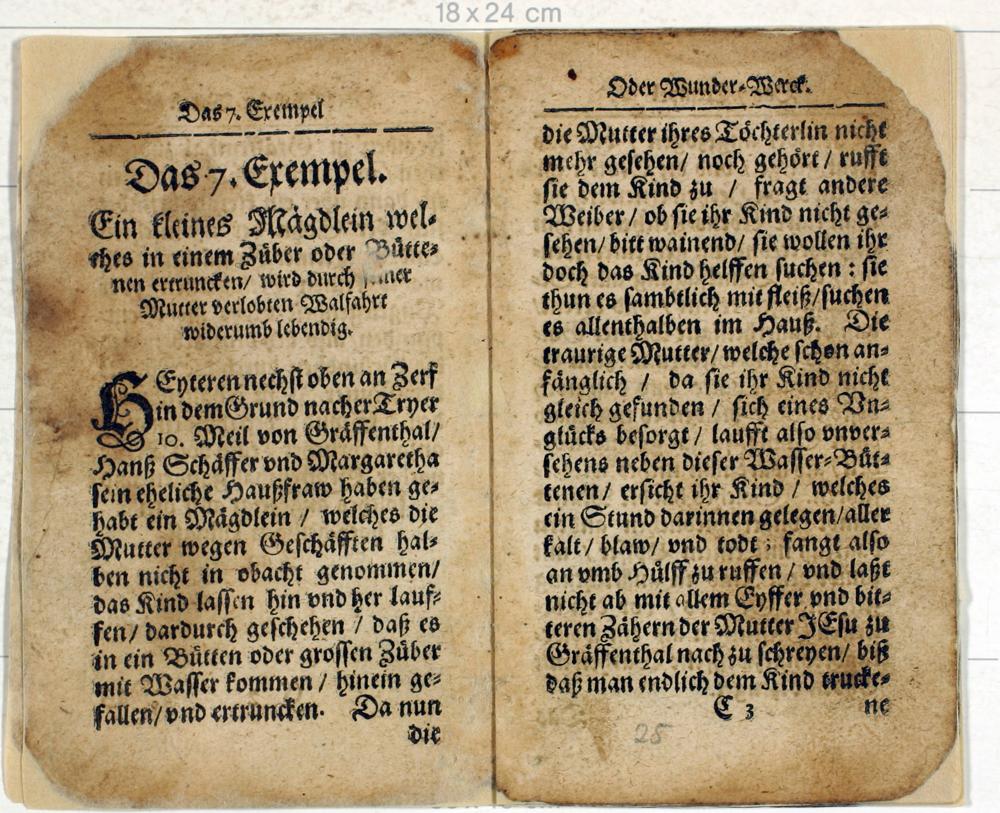 18 x 24 cm
Das 7. Exempel
Das 7. Exempel.
Ein kleines Mägdlein wel-
ches in einem Züber oder Bütte-
nen ertruncken/ wird durch seiner
Mutter verlobten Walfahrt
widerumb lebendig.
HEyteren nechst oben an Zerf
in dem Grund nacher Tryer
10. Meil von Gräffenthal/
Hanß Schäffer vnd Margaretha
sein eheliche Haußfraw haben ge-
habt ein Mägdlein / welches die
Mutter wegen Geschäfften hal-
ben nicht in obacht genommen/
das Kind lassen hin vnd her lauf-
fen/ dardurch geschehen / daß es
in ein Bütten oder grossen Züber
mit Wasser kommen / hinein ge-
fallen/ vnd ertruncken. Da nun
die
Oder Wunder-Werck.
die Mutter ihres Töchterlin nicht
mehr gesehen/ noch gehört / rufft
sie dem Kind zu / fragt andere
Weiber / ob sie ihr Kind nicht ge-
sehen/ bitt wainend/ sie wollen ihr
doch das Kind helffen suchen : sie
thun es sambtlich mit fleiß/ suchen
es allenthalben im Hauß. Die
traurige Mutter/ welche schon an-
fänglich / da sie ihr Kind nicht
gleich gefunden / sich eines Vn-
glücks besorgt / laufft also vnver-
sehens neben dieser Wasser-Büt-
tenen/ ersicht ihr Kind / welches
ein Stund darinnen gelegen/ aller
kalt / blaw/ vnd todt ; fangt also
an vmb Hülff zu ruffen / vnd laßt
nicht ab mit allem Eyffer vnd bit-
teren Zähern der Mutter JEsu zu
Gräffenthal nach zu schreyen/ biß
daß man endlich dem Kind trucke-
C 3 ne
25